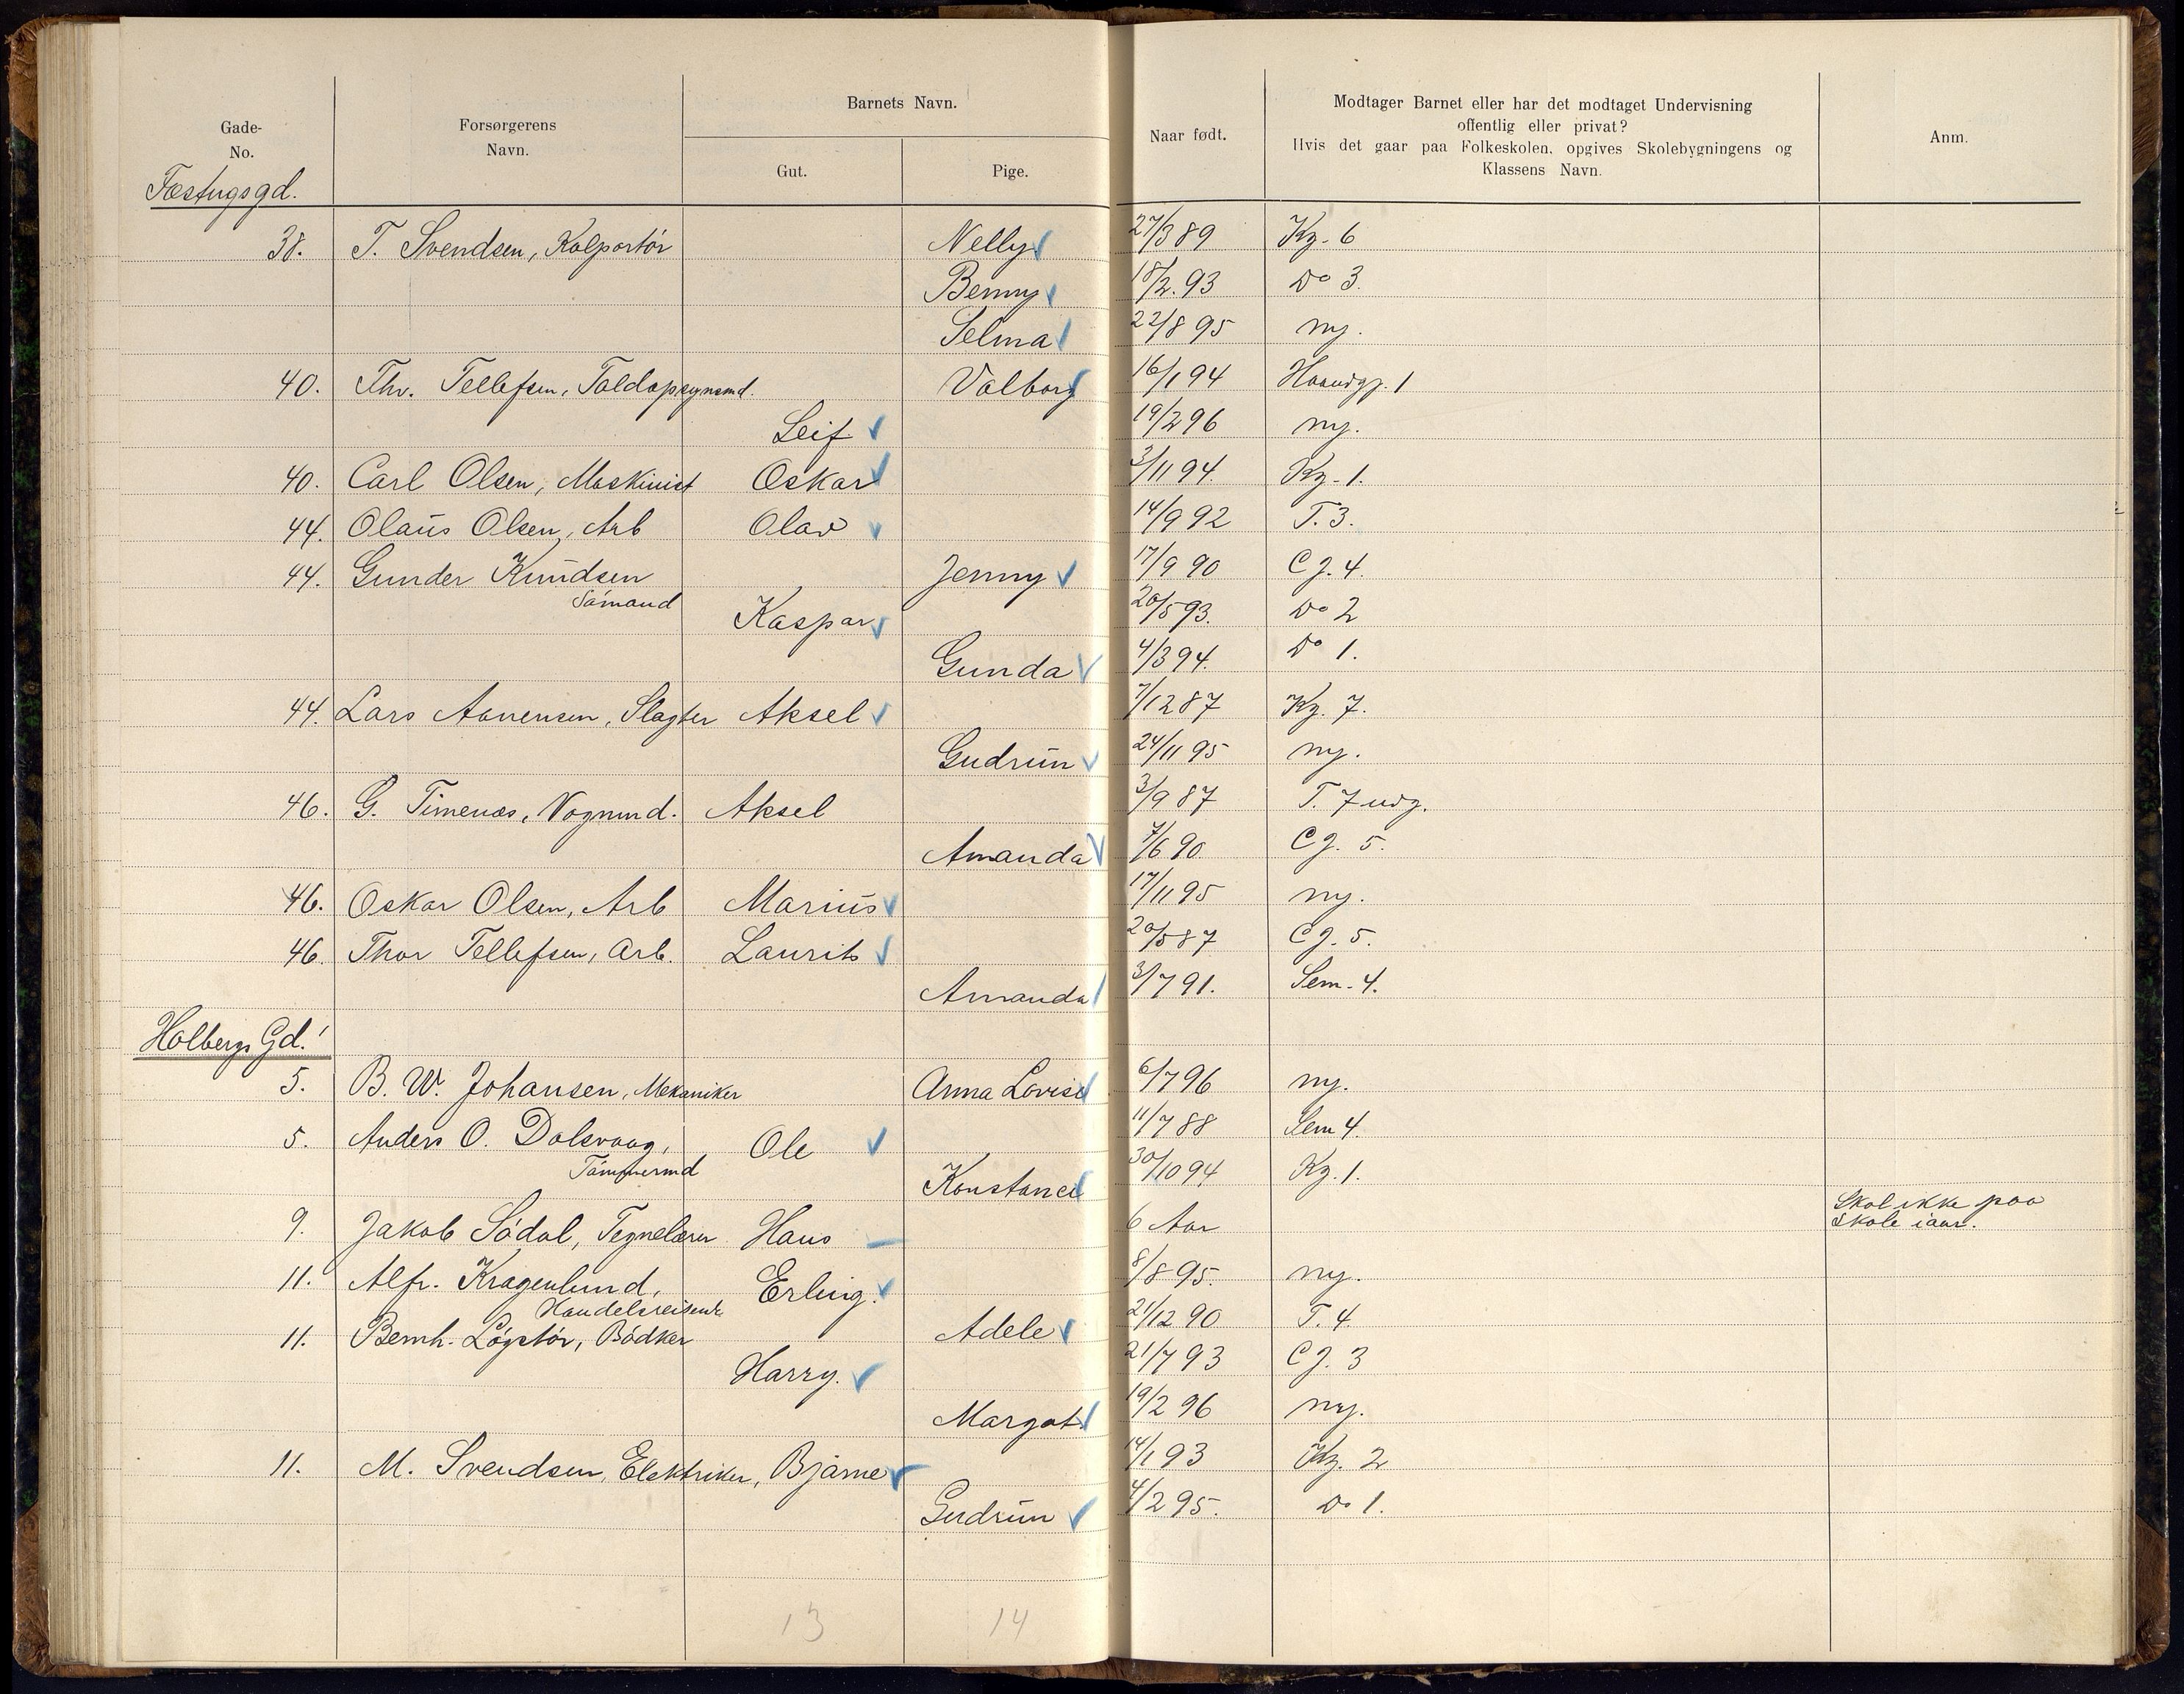 Gade-
No.
Forsørgerens
Navn.
Barnets Navn.
Gut.
Pige.
Naar født.
Modtager Barnet eller har det modtaget Undervisning
offentlig eller privat?
Hvis det gaar paa Folkeskolen, opgives Skolebygningens og
Klassens Navn.
Anm.
Fæstngsgd.
38. T. Svendsen, Kolportör Nelly 27/3 89 Kg. 6
Benny 18/2. 93 Do 3.
Selma 22/8 95 ny.
40. Thv. Tellefsen, Toldopsynsmd. Valborg 16/1 94 1
Leif 19/2 96 ny.
40. Carl Olsen, Maskinist Oskar 3/11 94. Kg. 1.
44. Olaus Olsen, Arb Olav 14/9 92 T. 3.
44. Gunder Knudsen Jenny 17/9 90 Cg. 4.
Sömand
Kaspar 20/5 93. Do 2
Gunda 4/3 94. Do 1.
44. Lars Aanensen, Slagter Aksel 7/12 87 Kg. 7.
Gudrun 24/11 95 ny.
46. G. Timenæs, Vognmd. Aksel 3/9 87 T. 7 udg.
Amanda 7/6 90. Cg. 5.
46. Oskar Olsen, Arb Marius 17/11 95 ny.
46. Thor Tellefsen, Arb. Laurits 20/5 87 Cg. 5.
Amanda 3/7 91. Sem. 4.
Holbergs Gd.
5. B. W. Johansen, Mekaniker Anna Lovise 6/7 96 ny.
5. Anders O. Dalsvaag, Ole 11/7 88 Sem 4.
Tömmermd
Konstance 30/10 94 Kg. 1.
9. Jakob Södal, Tegnelærer Hans 6 Aar Skal ikke paa
skole iaar.
11. Alfr. Kragenlund, Erling. 8/8 95. ny.
Handelsreisende
11. Bernh. Lögstör, Bödker Adele 21/12 90 T. 4
Harry. 21/7 93 Cg. 3
Margot 19/2 96 ny.
11. M. Svendsen, Elektriker, Bjarne 14/1 93 Kg. 2
Gudrun 4/2 95. Do 1.
13 14